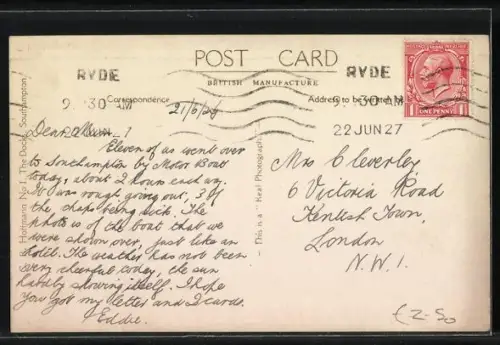 POST CARD
BRITISH MANUFACTURE
RYDE
9.30AM
22 JUN 27
RYDE
9.30 AM
22 JUN 27
ONE PENNY
Correspondence
Address to be
21/6/27
Dear Mum
Eleven of us went over
to Southampton by Motor Boat
today, about 2 hours each way.
It was rough going out, 3 of
the chaps being sick. The
photo is of the boat that we
were shown over, just like an
hotel. The weather has not been
very cheerful today, the sun
hardly showing itself. I hope
you got my letter and 2 cards.
Eddie.
Mrs Cleverley,
6 Victoria Road
Kentish Town,
London
N.W.1.
£2-50
Hoffmann No 1, The Docks, Southampton
This is a "Real Photograph"